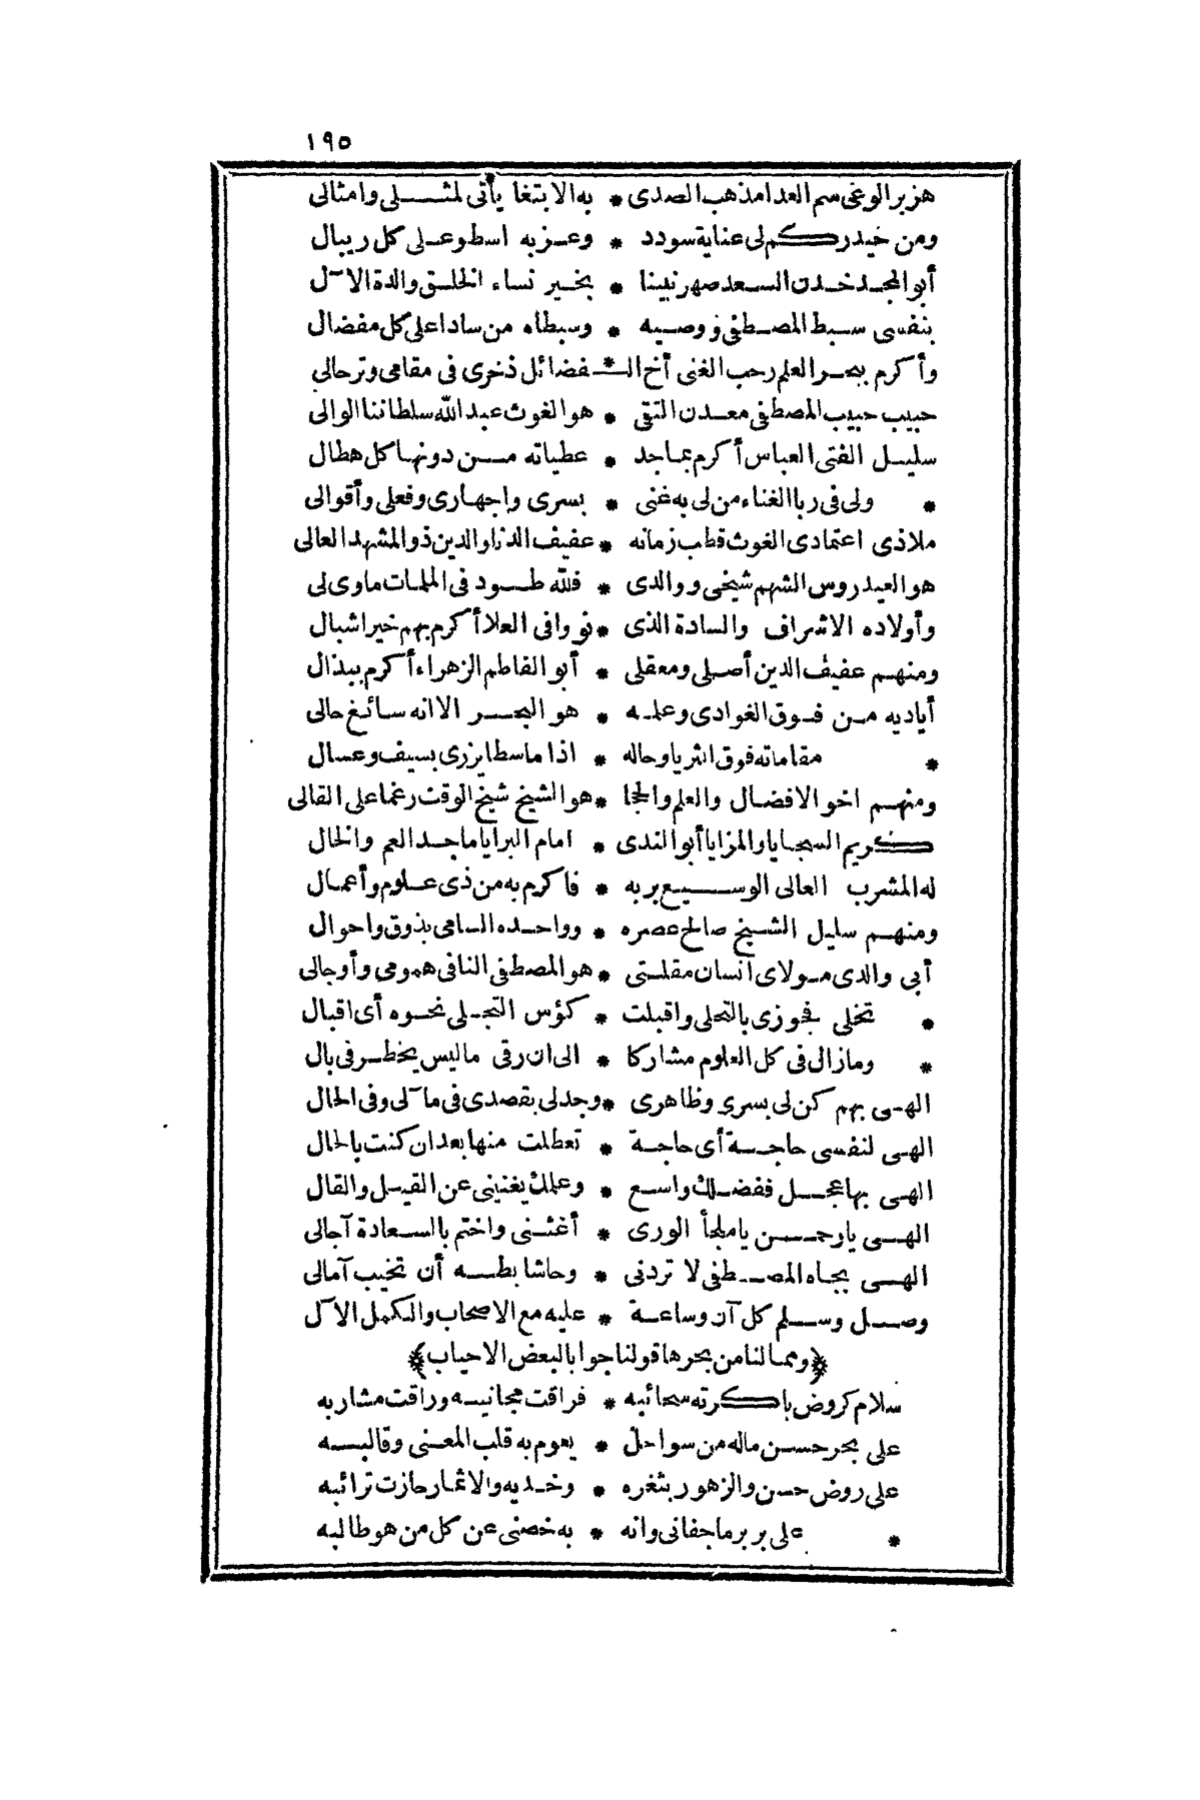 ١٩٥
هزبر الوغى سم العدا مذهب الصدى * به الابتغا يأتى لمثلى وامثالى
ومن حيدركم لى عناية سودد * وعز به اسطو على كل ريبال
أبو المجد خدن السعد صهر نبينا * بخير نساء الخلق والدة الآل
بنفسى سبط المصطفى ووصيه * وسبطاه من سادا على كل مفضال
وأكرم ببحر العلم رحب الغنى أخ الـ * ـفضائل ذخرى فى مقامى وترحالى
حبيب حبيب المصطفى معدن التقى * هو الغوث عبد الله سلطاننا الوالى
سليل الفتى العباس أكرم بماجد * عطياته من دونها كل هطال
* ولى فى ربا الغناء من لى به غنى * بسرى واجهارى وفعلى وأقوالى
ملاذى اعتمادى الغوث قطب زمانه * عفيف الدنا والدين ذو المشهد العالى
هو العيدروس الشهم شيخى ووالدى * فلله طود فى الملمات ماوى لى
وأولاده الاشراف والسادة الذى * نووا فى العلا أكرم بهم خير اشبال
ومنهم عفيف الدين أصلى ومعقلى * أبو الفاطم الزهراء أكرم ببذال
أياديه من فوق الغوادى وعلمه * هو البحر الا انه سائغ حالى
* مقاماته فوق الثريا وحاله * اذا ما سطا يزرى بسيف وعسال
ومنهم اخو الافضال والعلم والحجا * هو الشيخ شيخ الوقت رغما على القالى
كريم السجايا والمزايا أبو الندى * امام البرايا ماجد العم والخال
له المشرب العالى الوسيع بربه * فاكرم به من ذى علوم وأعمال
ومنهم سليل الشيخ صالح عصره * وواحده السامى بذوق واحوال
أبى والدى مولاى انسان مقلتى * هو المصطفى النافى همومى وأوجالى
* تخلى فجوزى بالتحلى واقبلت * كؤس التجلى نحوه أى اقبال
* ومازال فى كل العلوم مشاركا * الى ان رقى ما ليس يخطر فى بال
الهى بهم كن لى بسرى وظاهرى * وجد لى بقصدى فى مآلى وفى الحال
الهى لنفسى حاجة أى حاجة * تعطلت منها بعد ان كنت بالحال
الهى بها عجل ففضلك واسع * وعلمك يغنينى عن القيل والقال
الهى يارحمن يا ملجأ الورى * أغثنى واختم بالسعادة آجالى
الهى بجاه المصطفى لا تردنى * وحاشا بطه أن تخيب آمالى
وصل وسلم كل آن وساعة * عليه مع الاصحاب والكمل الآل
﴿ومما لنا من بحرها قولنا جوابا لبعض الاحباب﴾
سلام كروض باكرته سحائبه * فراقت مجانيه وراقت مشاربه
على بحر حسن ماله من سواحل * يعوم به قلب المعنى وقالبه
على روض حسن والزهور بثغره * وخديه والاثمار حازت ترائبه
* على بر بر ما جفانى وانه * به خصنى عن كل من هو طالبه